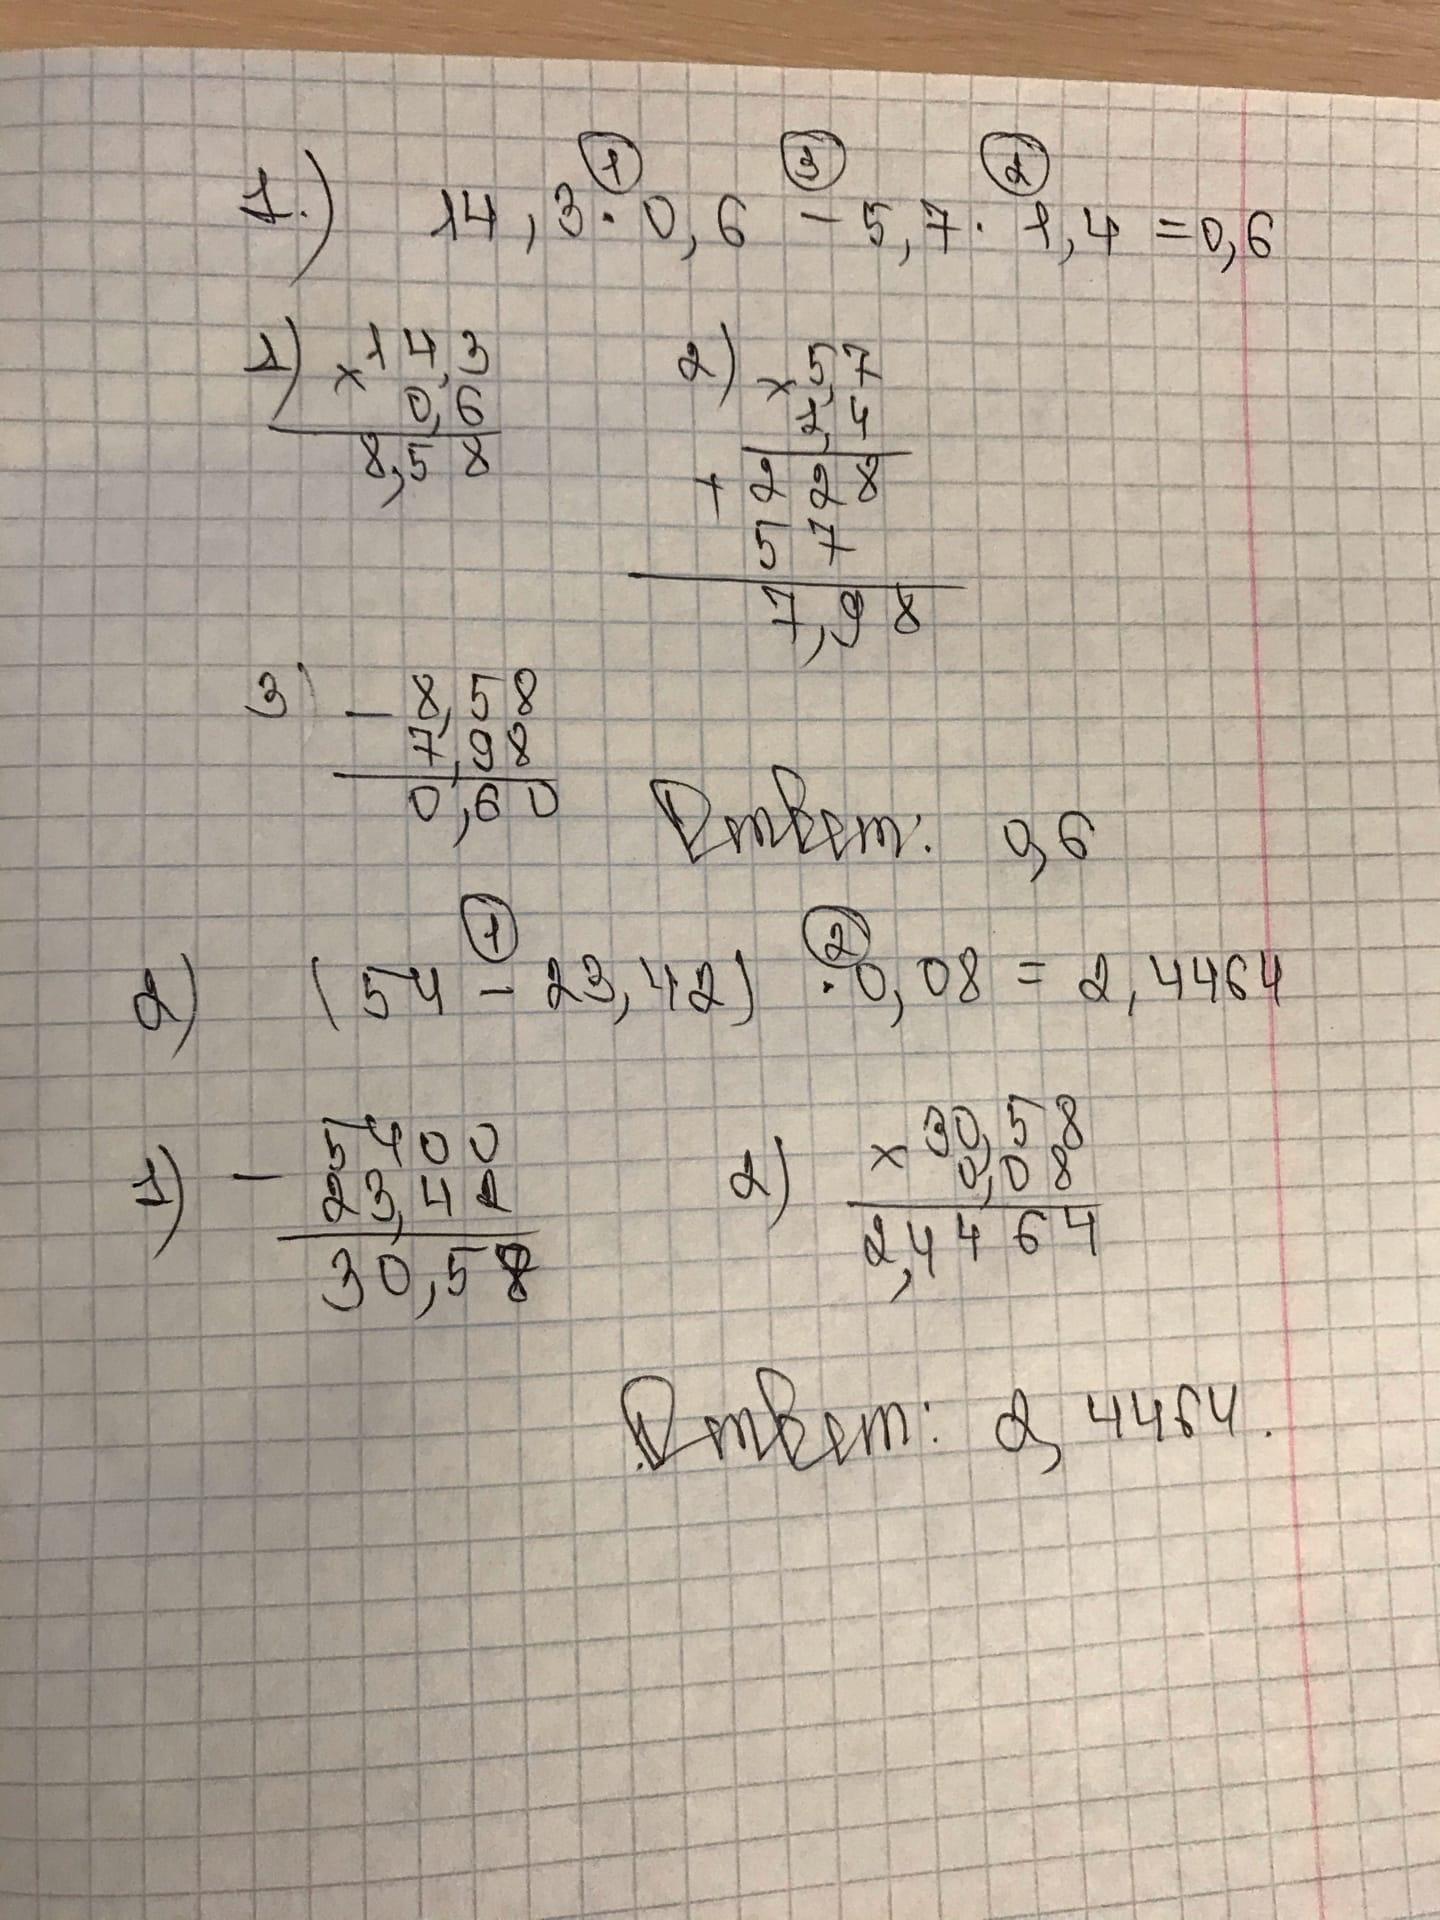 1.) 14,3 · 0,6 - 5,7 · 1,4 = 0,6
① ③ ②
1) × 14,3
0,6
8,58
2) × 5,7
1,4
+ 228
57
7,98
3) - 8,58
7,98
0,60
Ответ: 0,6
① ②
2) (54 - 23,42) · 0,08 = 2,4464
1) - 5400
23,42
30,58
2) × 30,58
0,08
2,4464
Ответ: 2,4464.